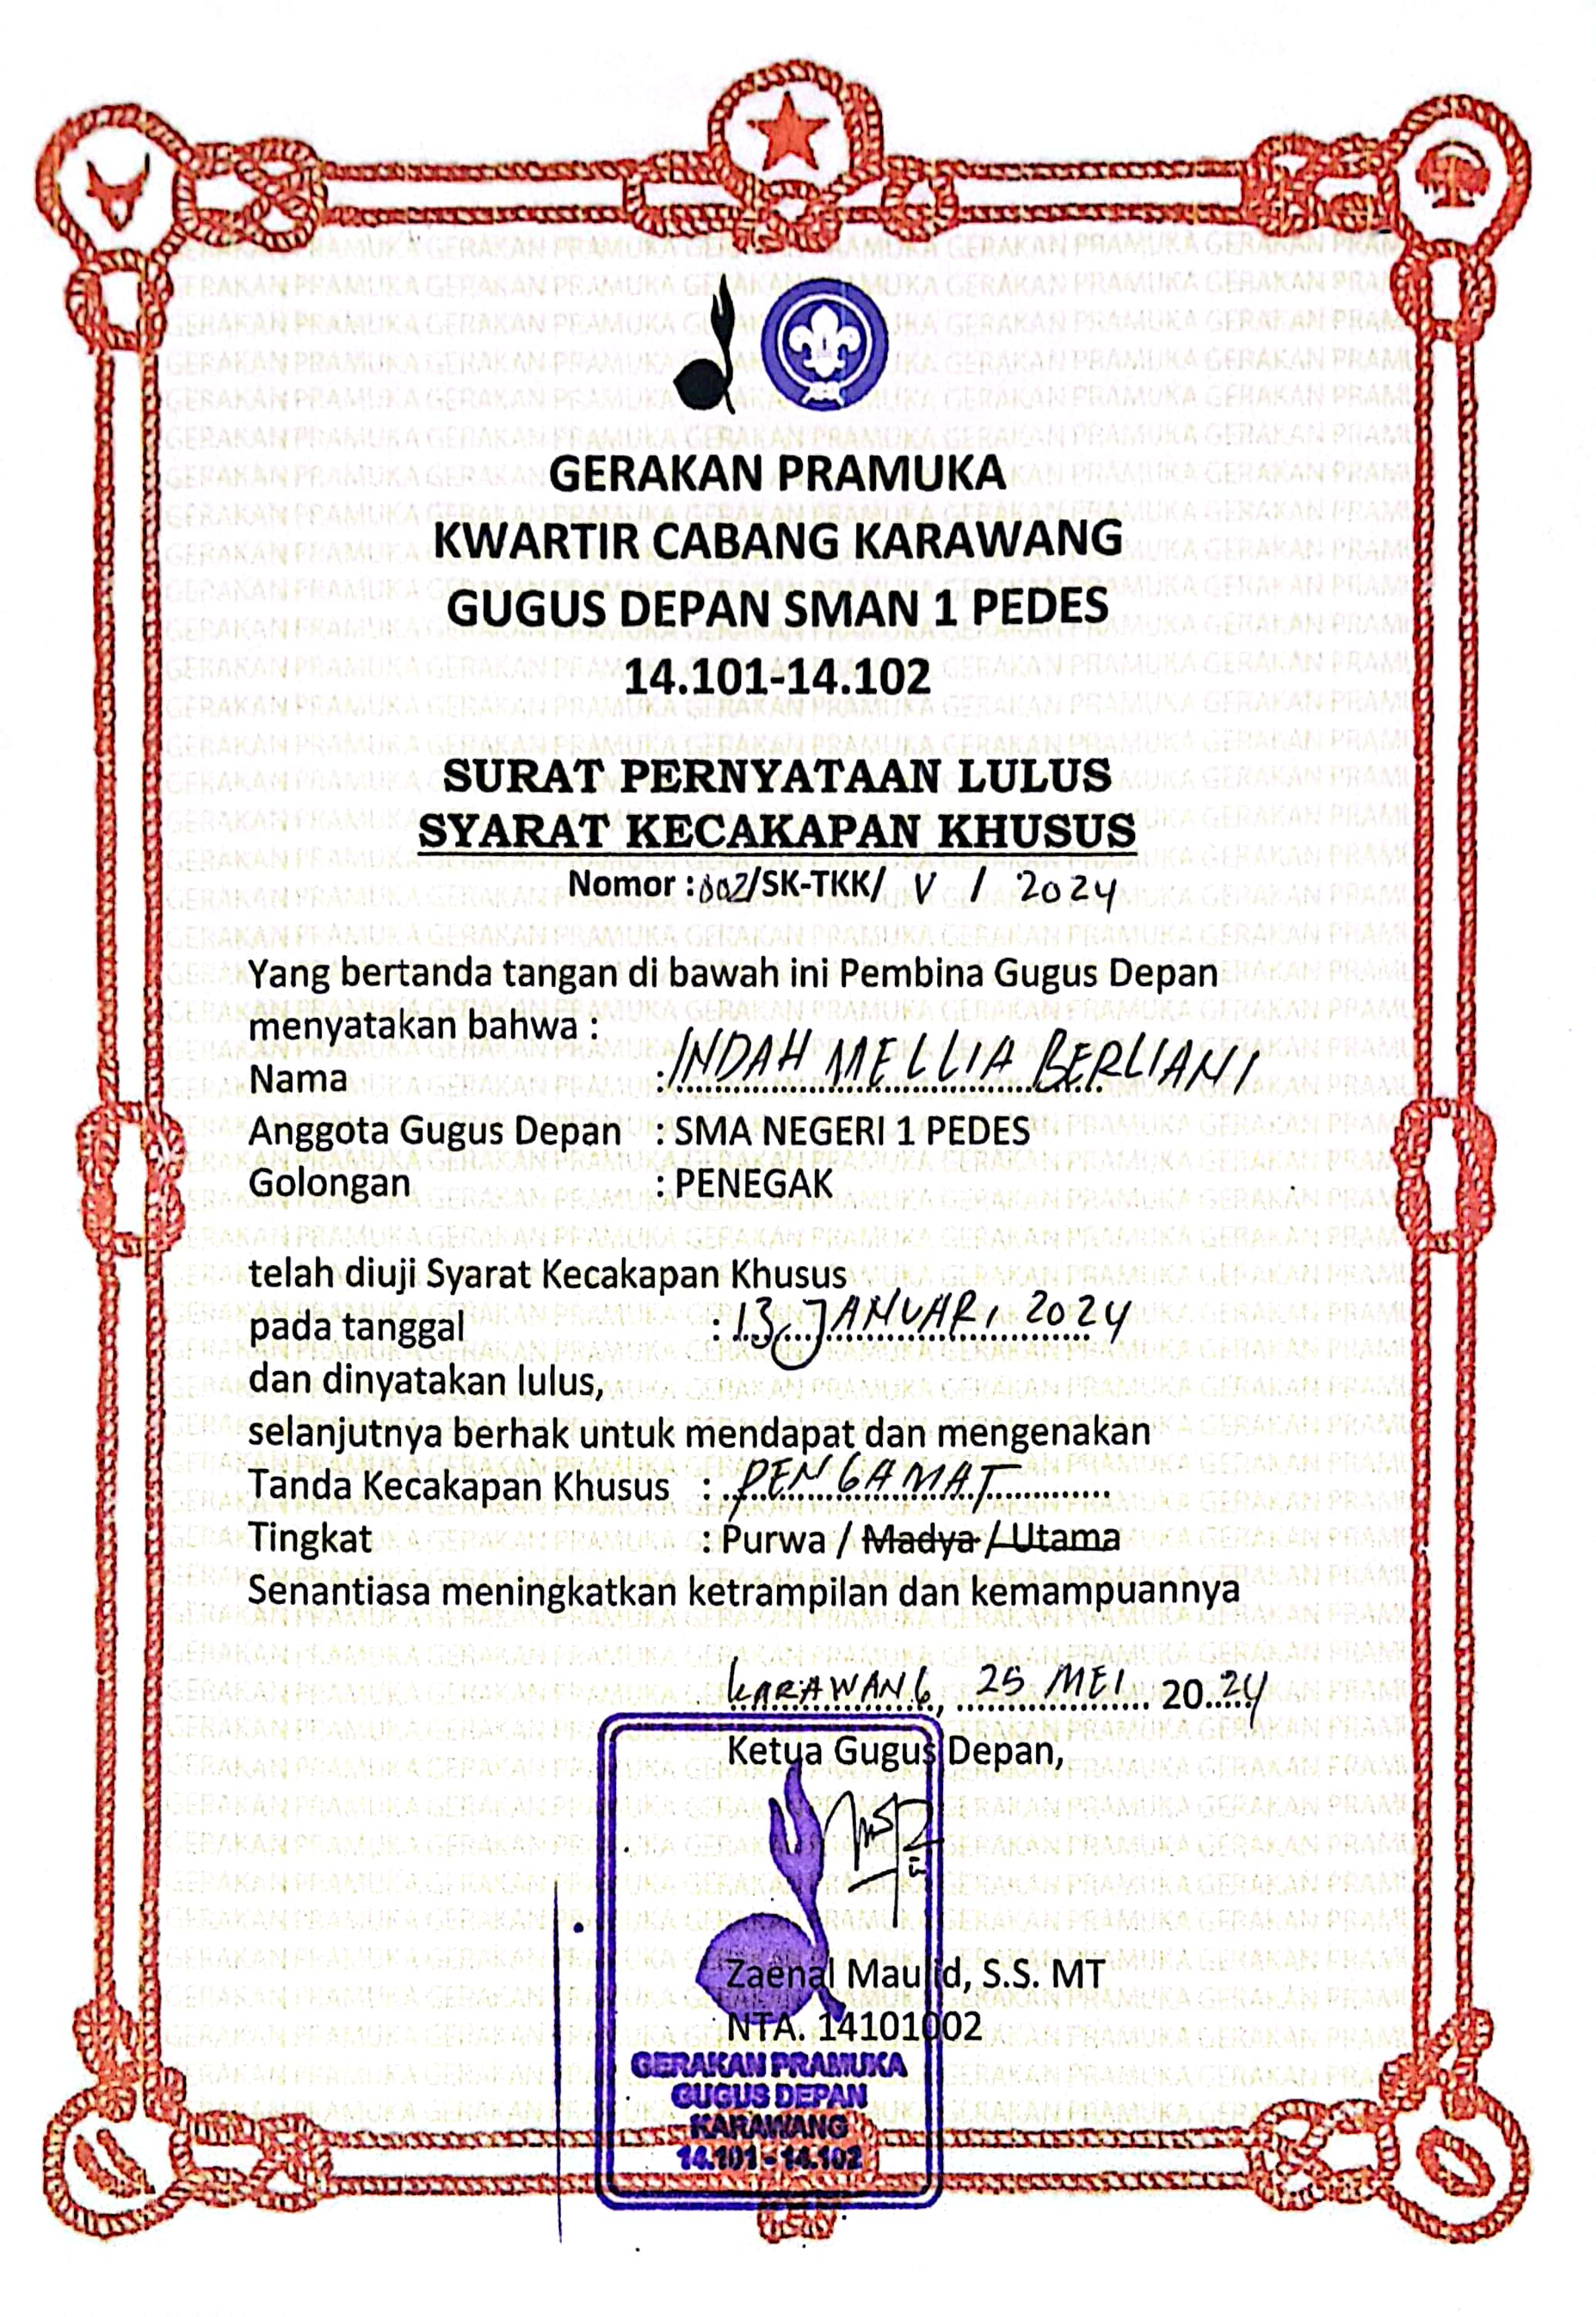 GERAKAN PRAMUKA
KWARTIR CABANG KARAWANG
GUGUS DEPAN SMAN 1 PEDES
14.101-14.102
SURAT PERNYATAAN LULUS
SYARAT KECAKAPAN KHUSUS
Nomor : 002/SK-TKK/ V / 2024
Yang bertanda tangan di bawah ini Pembina Gugus Depan
menyatakan bahwa :
Nama : INDAH MELLIA BERLIANI
Anggota Gugus Depan : SMA NEGERI 1 PEDES
Golongan : PENEGAK
telah diuji Syarat Kecakapan Khusus
pada tanggal : 13 JANUARI 2024
dan dinyatakan lulus,
selanjutnya berhak untuk mendapat dan mengenakan
Tanda Kecakapan Khusus : PENGAMAT
Tingkat : Purwa / Madya / Utama
Senantiasa meningkatkan ketrampilan dan kemampuannya
KARAWANG, 25 MEI 2024
Ketua Gugus Depan,
Zaenal Maulid, S.S. MT
NTA. 14101002
GERAKAN PRAMUKA
GUGUS DEPAN
KARAWANG
14.101 - 14.102